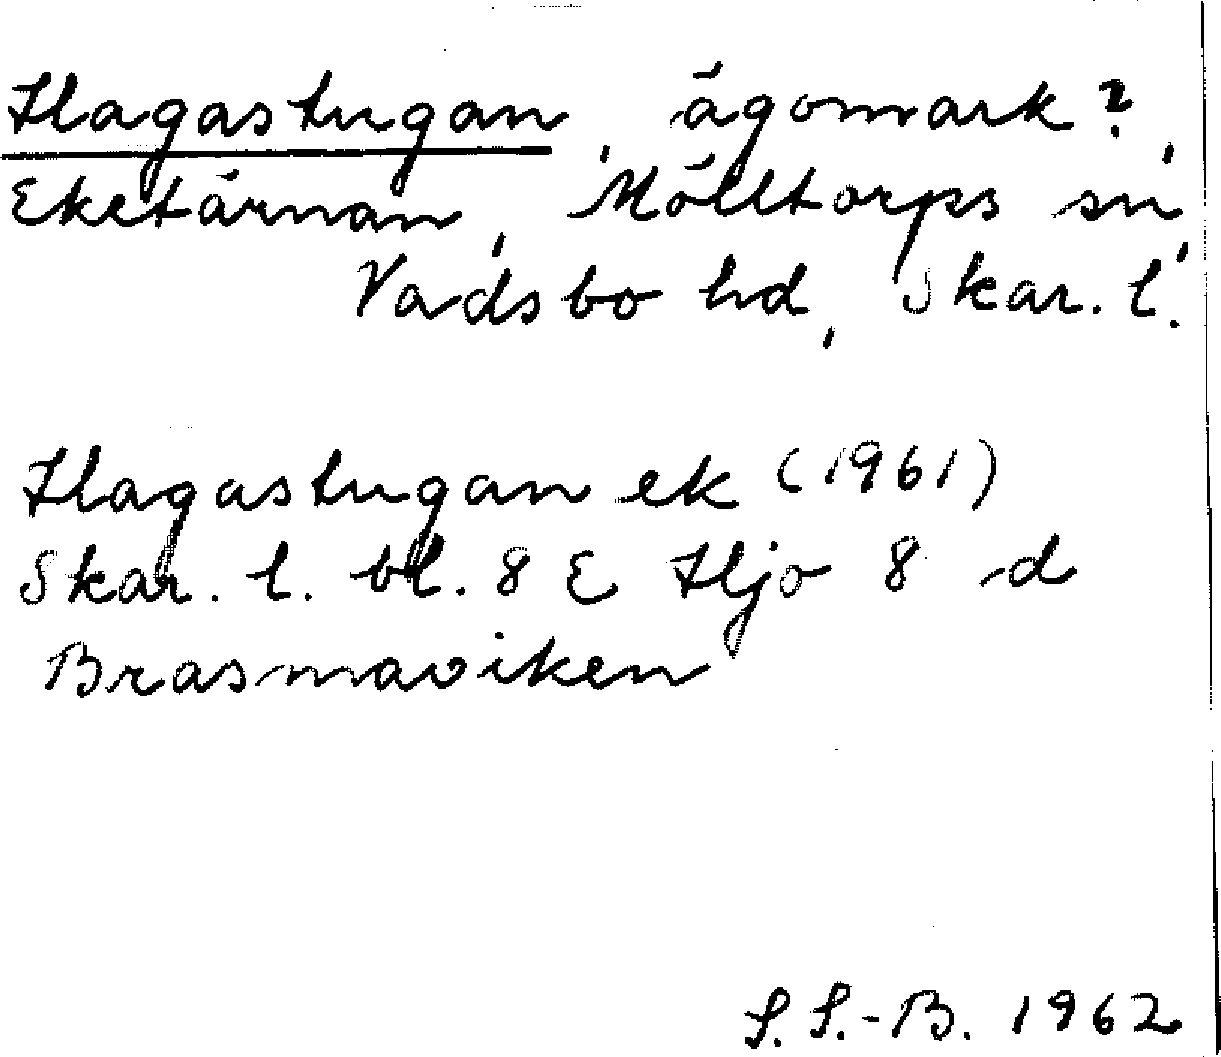 Hagastugan, ägomark?,
Eketärnan, Mölltorps sn,
Vadsbo hd, Skar. l.
Hagastugan ek (1961)
Skar. l. bl. 8 E Hjo 8 d
Brasmaviken
S. S.-B. 1962